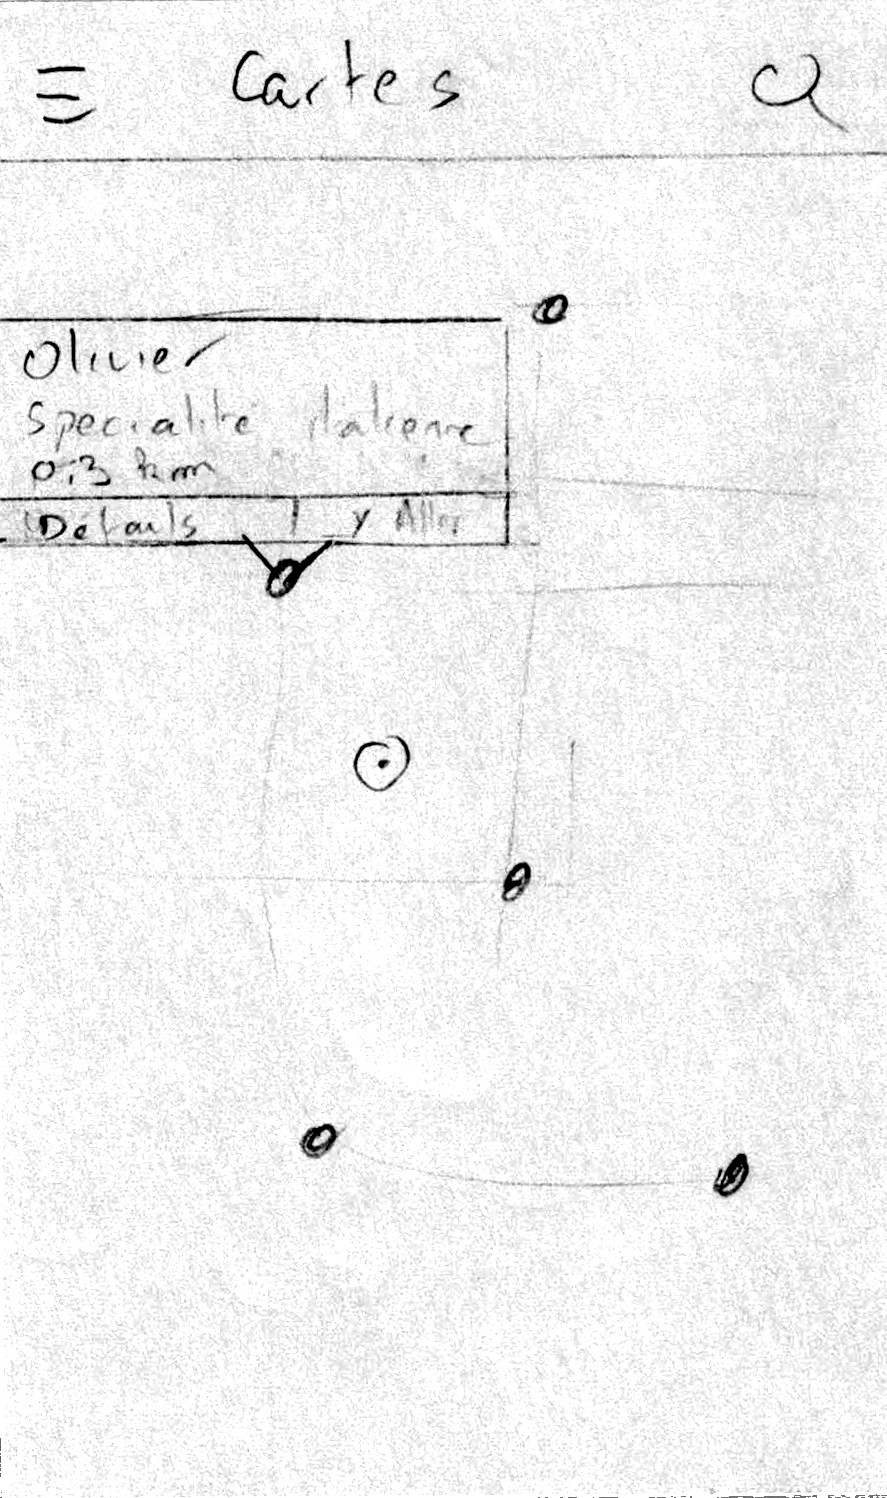 Cartes
Olivier
Spécialité italienne
0,3 km
Détails | y Aller